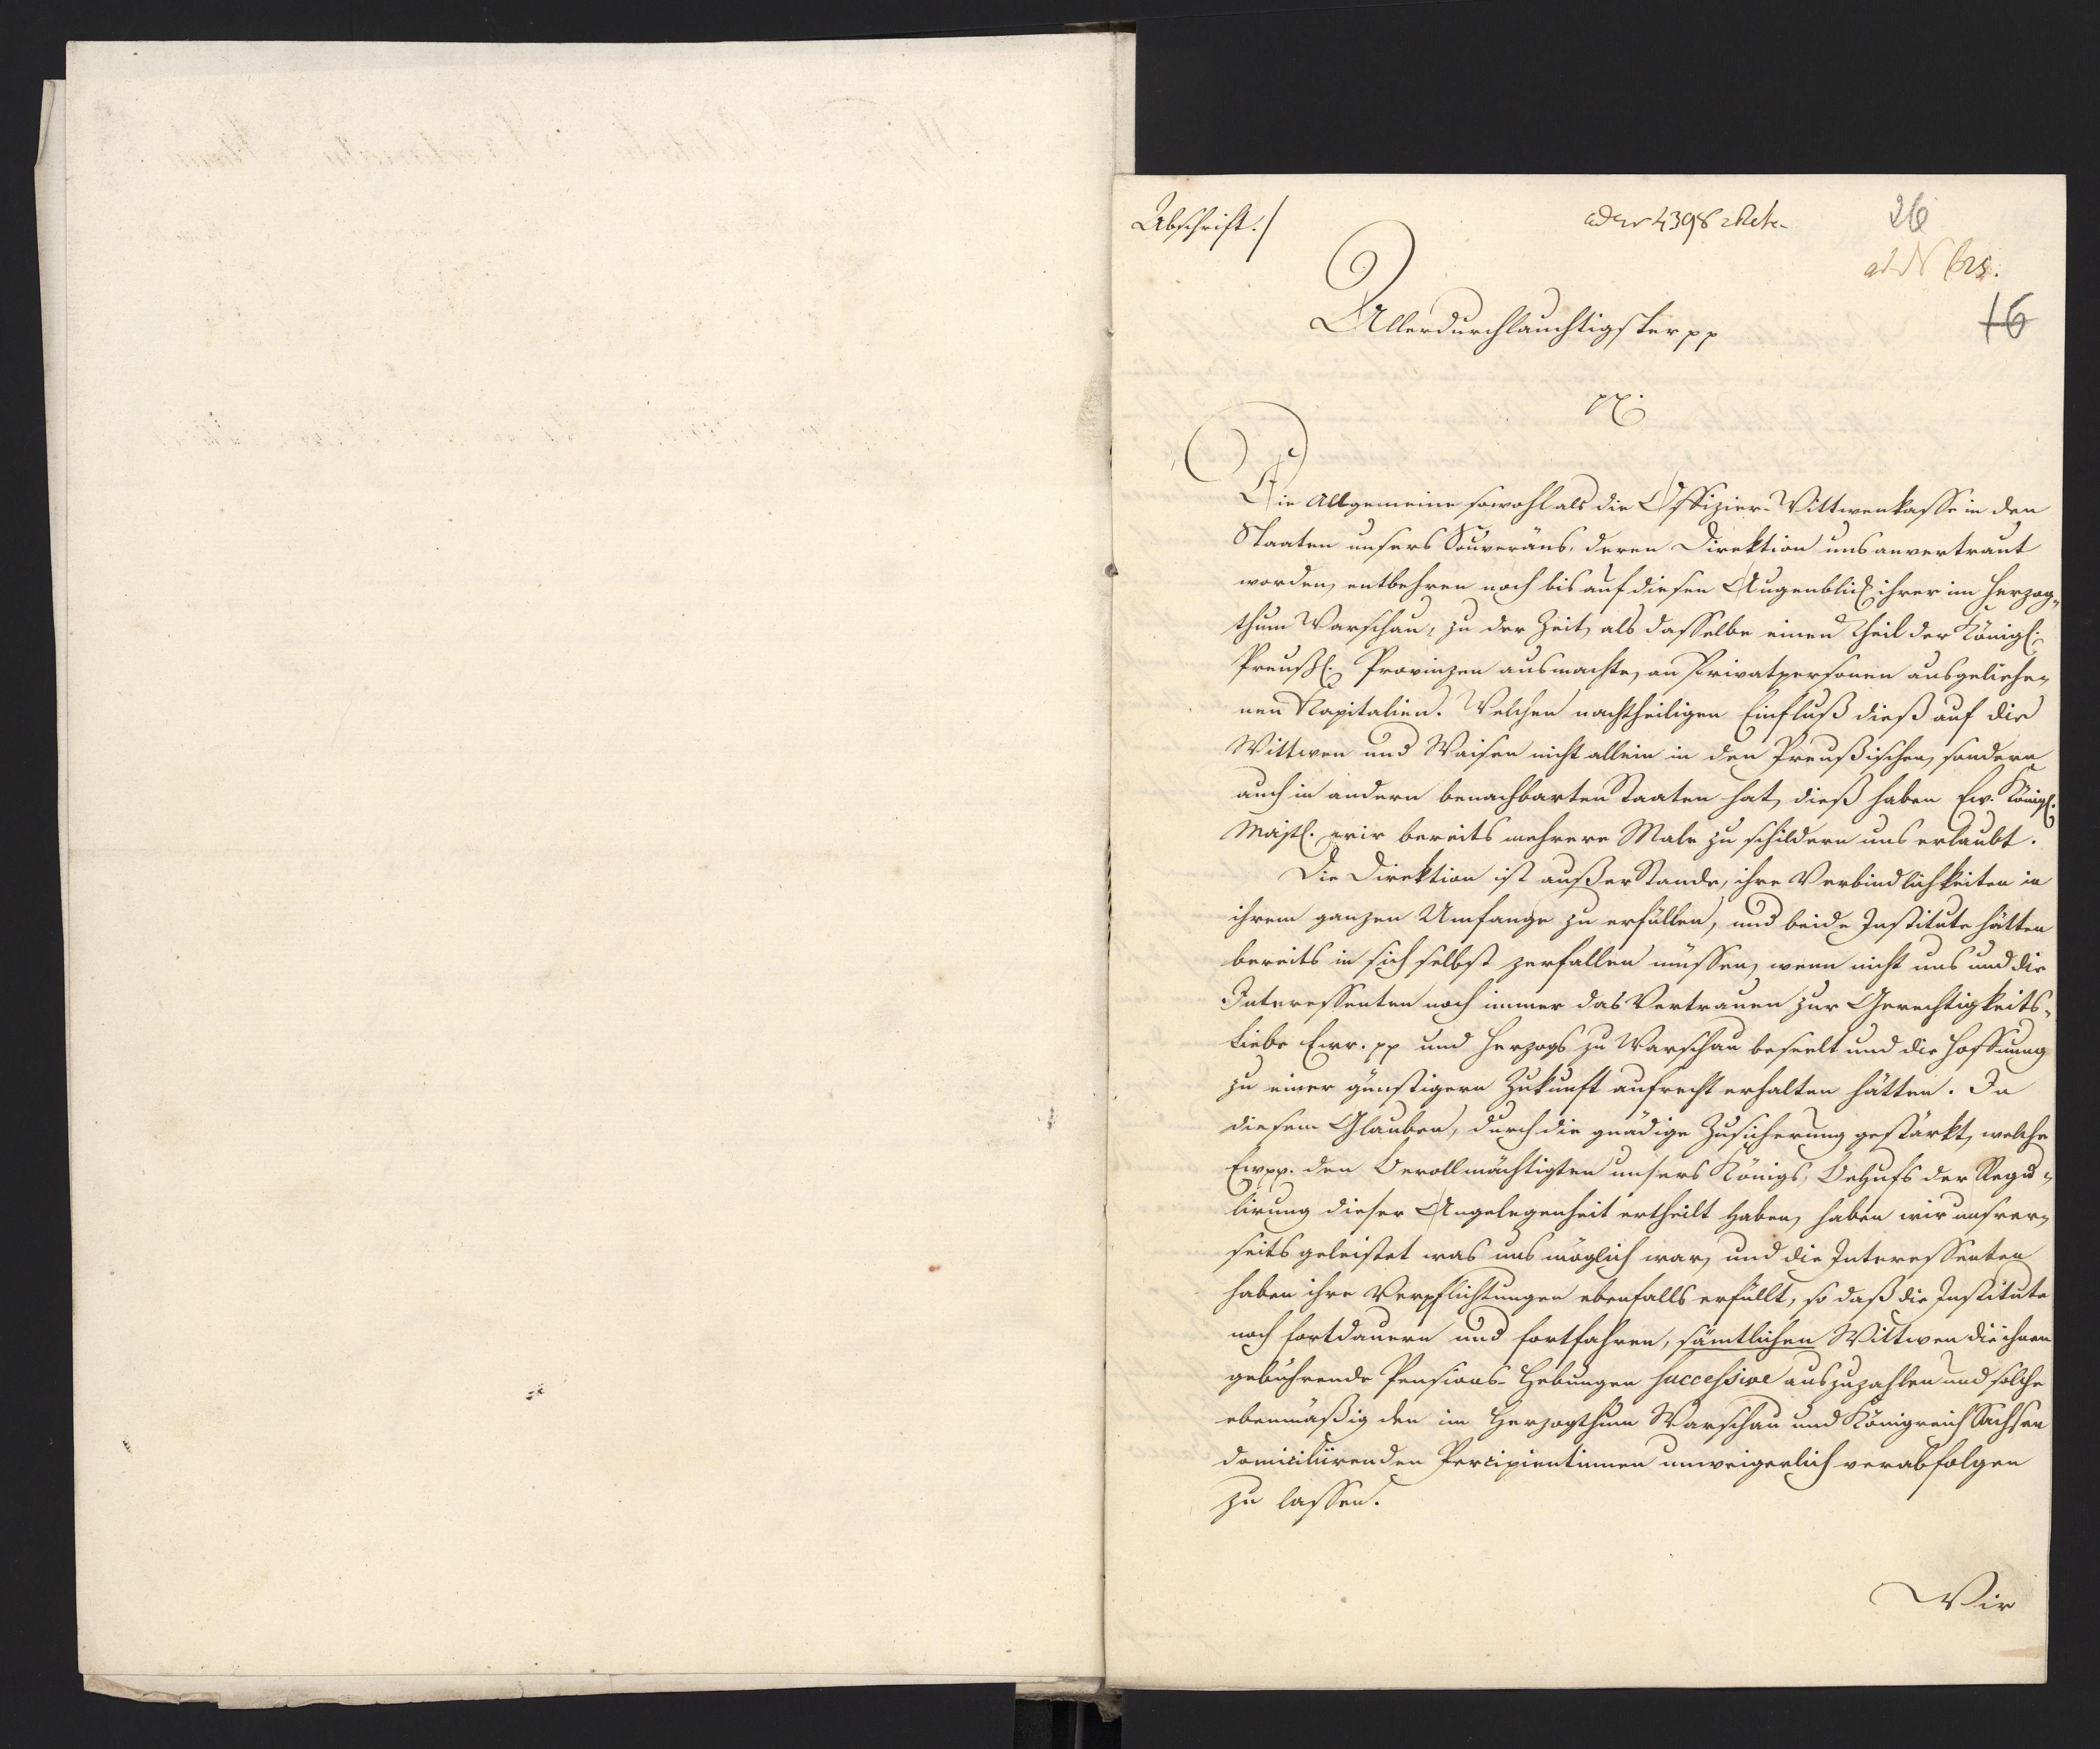 Abschrift./
ad N 4398
26
ad N 625.
16
Allerdurchlauchtigster pp
pp.
Die Allgemeine sowohl als die Offizier-Wittwenkasse in den
Staaten unsers Souveräns, deren Direktion uns anvertraut
worden, entbehren noch bis auf diesen Augenblick ihrer im Herzog-
thum Warschau, zu der Zeit, als dasselbe einen Theil der Königl.
Preußl. Provinzen ausmachte, an Privatpersonen ausgeliehe-
nen Kapitalien. Welchen nachtheiligen Einfluß dieß auf die
Wittwen und Waisen nicht allein in den Preußischen, sondern
auch in andern benachbarten Staaten hat, dieß haben Ew. Königl.
Majtl. wir bereits mehrere Male zu schildern uns erlaubt.
Die Direktion ist außer Stande, ihre Verbindlichkeiten in
ihrem ganzen Umfange zu erfüllen, und beide Institute hätten
bereits in sich selbst zerfallen müssen, wenn nicht uns und die
Interessenten noch immer das Vertrauen zur Gerechtigkeits-
Liebe Ewr. pp und Herzogs zu Warschau beseelt und die Hoffnung
zu einer günstigern Zukunft aufrecht erhalten hätten. In
diesem Glauben, durch die gnädige Zusicherung gestärkt, welche
Ew pp. den Bevollmächtigten unsers Königs, Behufs der Regu-
lirung dieser Angelegenheit ertheilt haben, haben wir unsrer-
seits geleistet was uns möglich war, und die Interessenten
haben ihre Verpflichtungen ebenfalls erfüllt, so daß die Institute
noch fortdauern und fortfahren, sämtlichen Wittwen die ihnen
gebührende Pensions-Hebungen successive auszuzahlen und solche
ebenmäßig den im Herzogthum Warschau und Königreich Sachsen
domiciliirenden Percipientinnen unweigerlich verabfolgen
zu lassen.
Wir